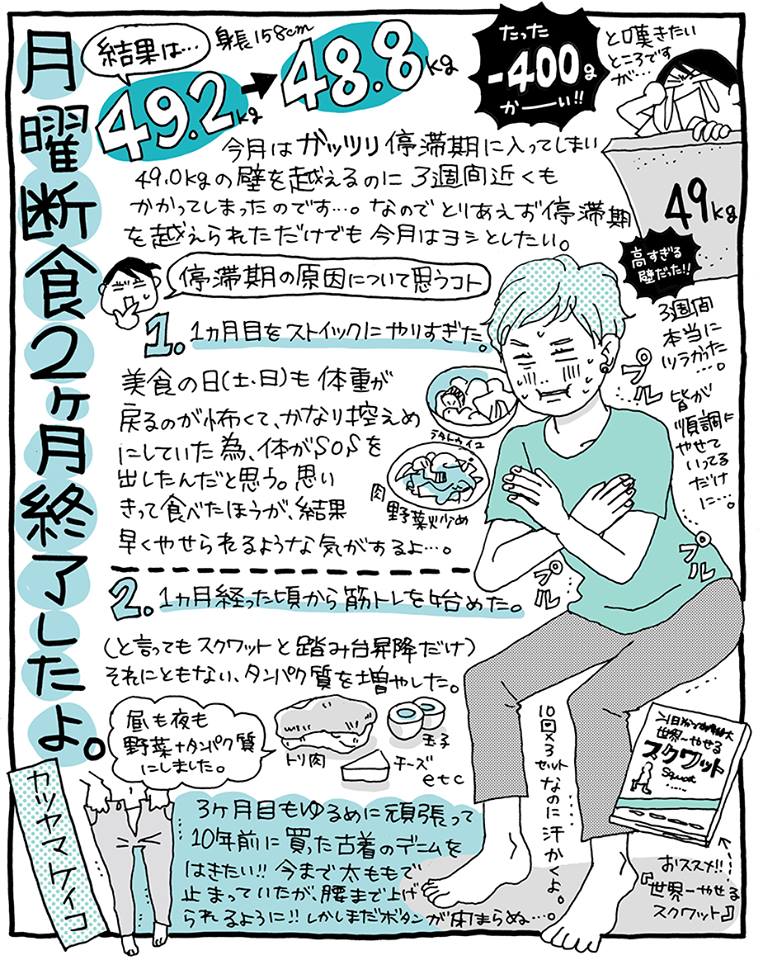 月曜断食2ヶ月終了したよ。
カツヤマケイコ
結果は…
身長158cm
49.2kg
48.8kg
たった
-400g
がーーい!!
と嘆きたい
ところです
が…
49kg
高すぎる
壁だった!!
今月はガッツリ停滞期に入ってしまい
49.0kgの壁を越えるのに3週間近くも
かかってしまったのです…。なのでとりあえず停滞期
を越えられただけでも今月はヨシとしたい。
停滞期の原因について思うコト
1. 1ヵ月目をストイックにやりすぎた。
美食の日(土、日)も体重が
戻るのが怖くて、かなり控えめ
にしていた為、体がSOSを
出したんだと思う。思い
きって食べたほうが、結果
早くやせられるような気がするよ…。
ラタトゥイユ
肉
野菜炒め
3週間
本当に
ツラかった…
皆が
順調に
やせて
いってる
だけ
に…。
プル
プル
プル
2. 1ヵ月経った頃から筋トレを始めた。
(と言ってもスクワットと踏み台昇降だけ)
それにともない、タンパク質を増やした。
昼も夜も
野菜+タンパク質
にしました。
トリ肉
玉子
チーズ
etc
10回×3セットなのに汗かくよ。
世界一やせる
スクワット
Squat
おススメ!!
『世界一やせる
スクワット』
3ヶ月目もゆるめに頑張って
10年前に買った古着のデニムを
はきたい!! 今まで太ももで
止まっていたが、腰まで上げ
られるように!! しかしまだボタンが閉まらぬ…。